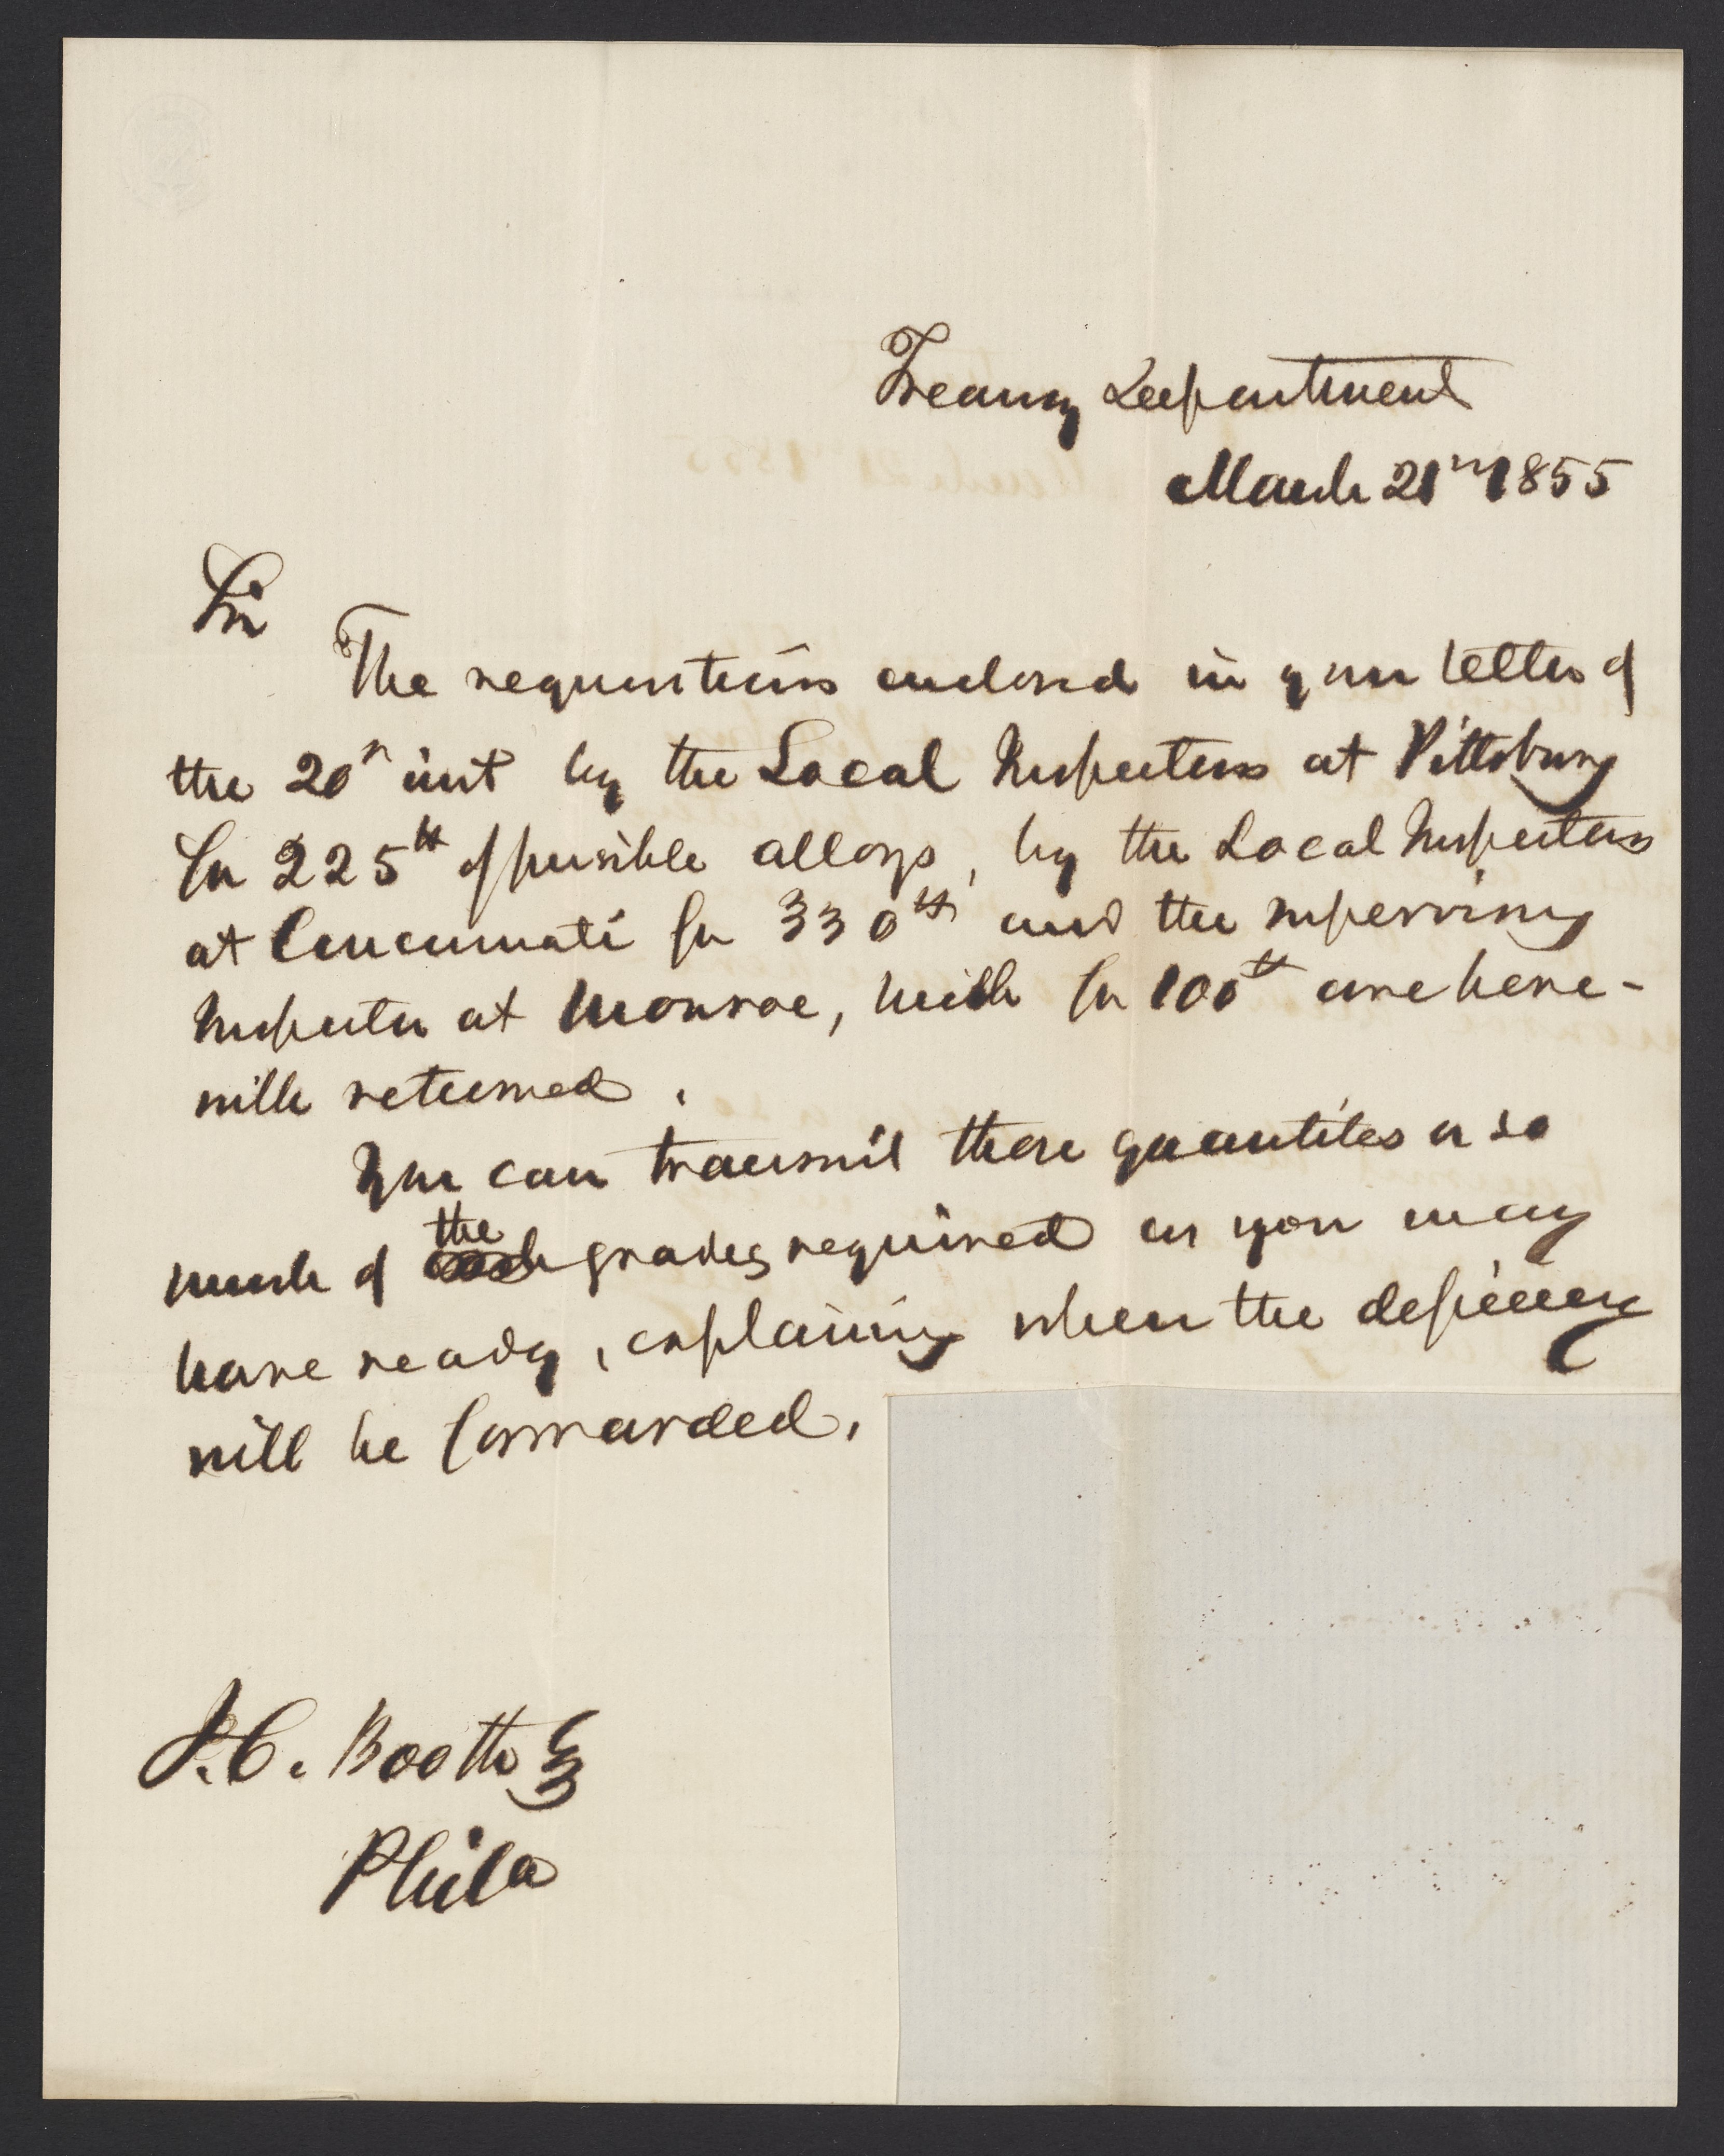 Treasury Department
March 21st 1855
Sir
The requisitions enclosed in your letter of
the 20th inst by the Local Inspectors at Pittsburg
for 225 lb of fusible alloys, by the Local Inspectors
at Cincinnati for 330 lbs and the supervising
Inspector at Monroe, Mich for 100 lb are here-
with returned.
You can transmit these quantites or so
much of the grades required as you may
have ready, explaining when the deficiency
will be forwarded.
J. C. Booth Esq
Phila